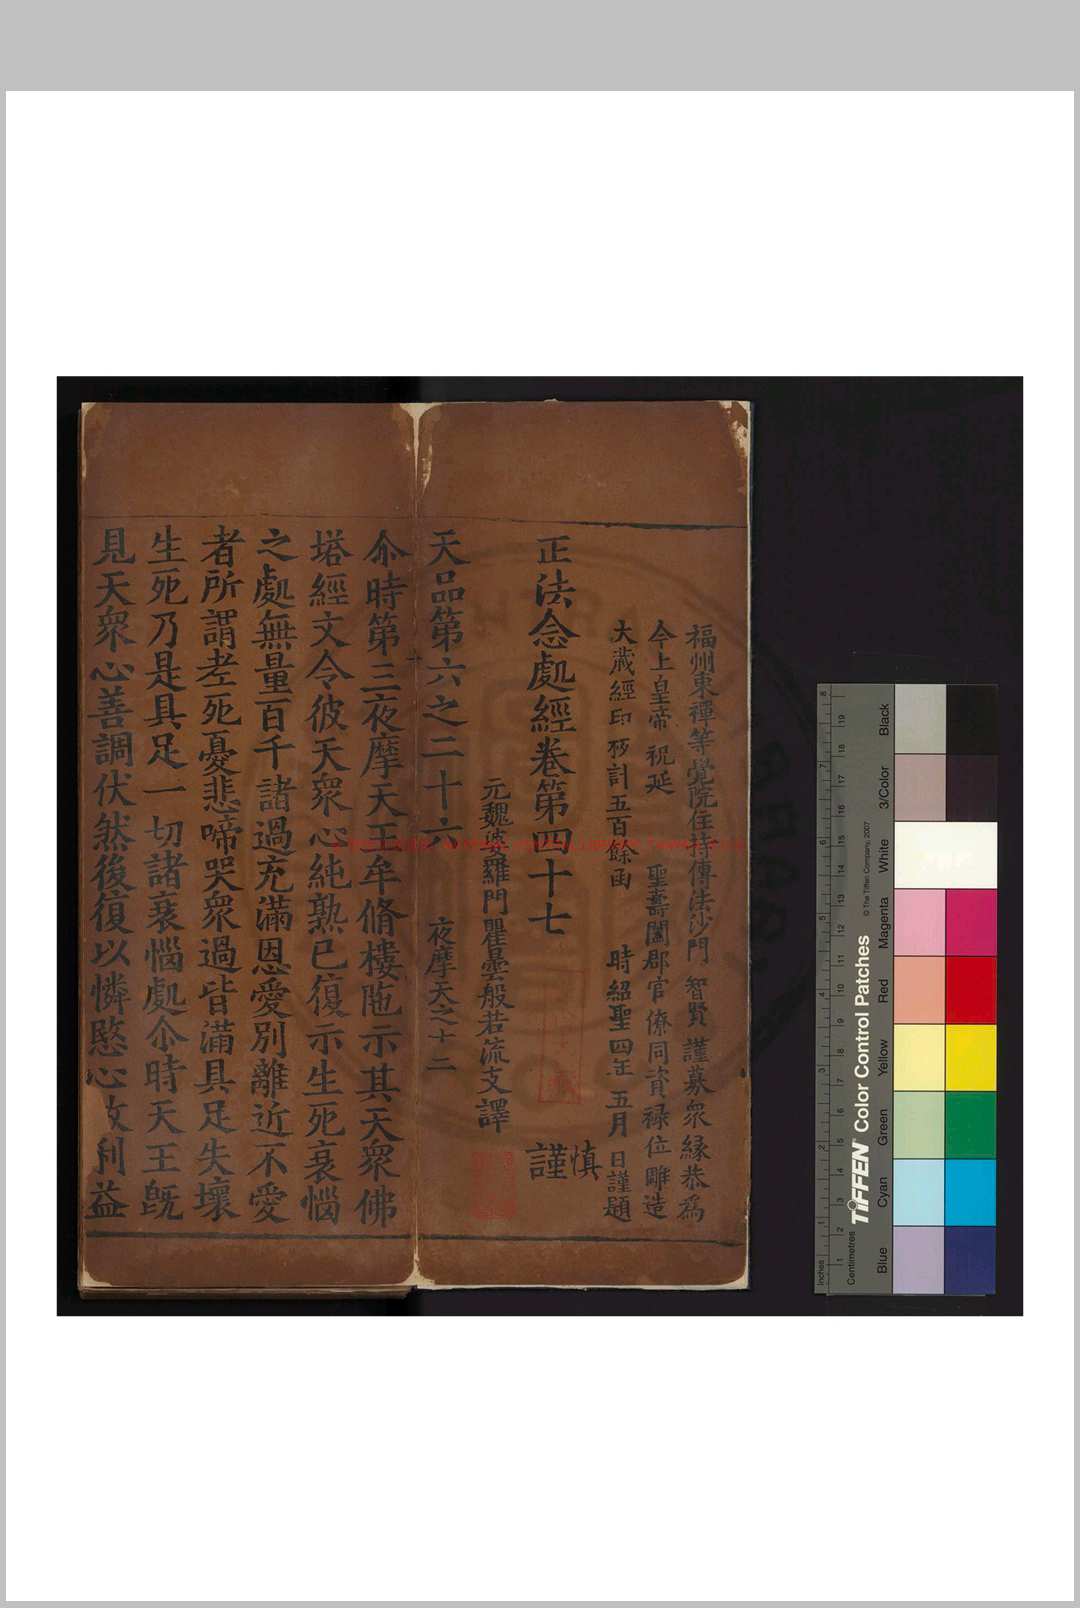 福州東禪等覺院住持傳法沙門 智賢 謹募眾緣恭為
今上皇帝 祝延 聖壽闔郡官僚同資祿位雕造
大藏經印板計五百餘函 時紹聖四年 五月 日謹題
正法念處經卷第四十七
慎
謹
元魏婆羅門瞿曇般若流支譯
天品第六之二十六 夜摩天之十二
尒時第三夜摩天王牟脩樓陁示其天眾佛
塔經文令彼天眾心純熟已復示生死衰惱
之處無量百千諸過充滿恩愛別離近不愛
者所謂老死憂悲啼哭眾過皆滿具足失壞
生死乃是具足一切諸衰惱處尒時天王既
見天眾心善調伏然後復以憐愍心故利益
Inches
Centimetres
TIFFEN Color Control Patches
© The Tiffen Company, 2007
Blue
Cyan
Green
Yellow
Red
Magenta
White
3/Color
Black